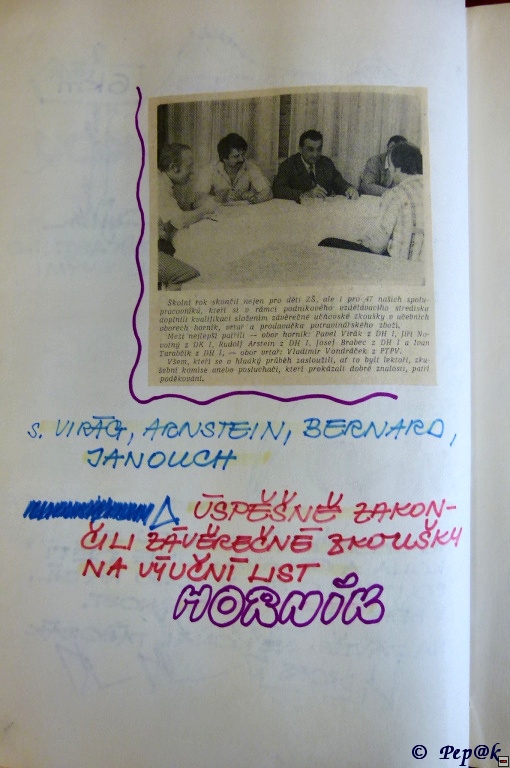 Školní rok skončil nejen pro děti ZŠ, ale i pro 47 našich spolu-
pracovníků, kteří si v rámci podnikového vzdělávacího střediska
doplnili kvalifikaci složením závěrečné učňovské zkoušky v učebních
oborech horník, vrtař a prodavačka potravinářského zboží.
Mezi nejlepší patřili — obor horník: Pavel Virák z DH I, Jiří No-
votný z DK I, Rudolf Arstein z DH I, Josef Brabec z DH I a Ivan
Turabčík z DH I, — obor vrtař: Vladimír Vondráček z PTPV.
Všem, kteří se o hladký průběh zasloužili, ať to byli lektoři, zku-
šební komise anebo posluchači, kteří prokázali dobré znalosti, patří
poděkování.
S. VIRÁG, ARNSTEIN, BERNARD,
JANOUCH
ÚSPĚŠNĚ ZAKON-
ČILI ZÁVĚREČNÉ ZKOUŠKY
NA VÝUČNÍ LIST
HORNÍK
© Pep@k